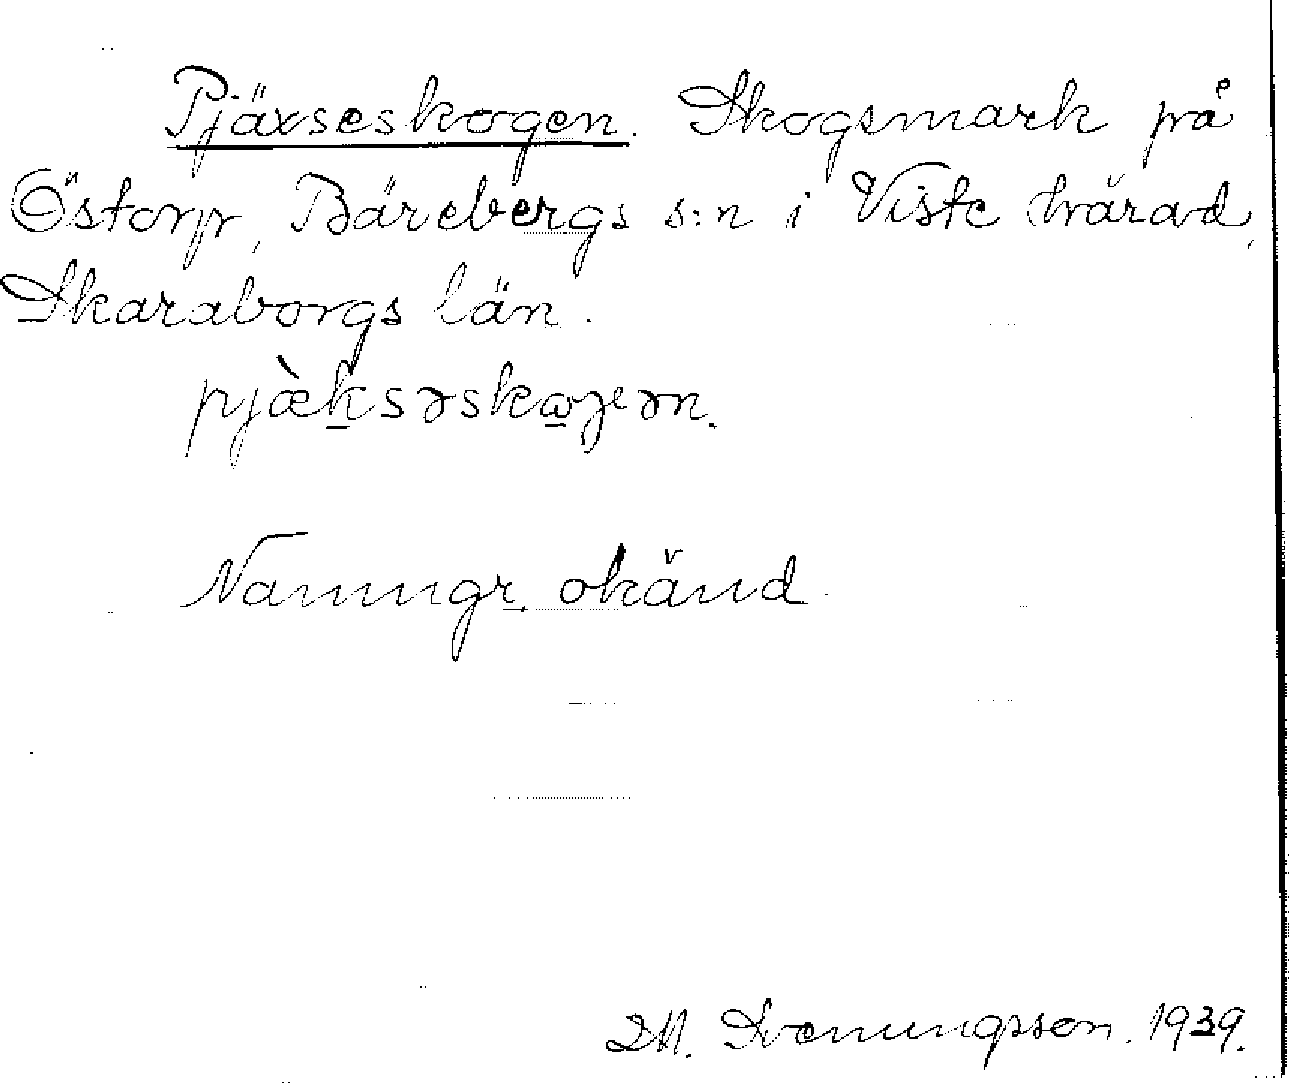 Pjäxseskogen. Skogsmark på
Östorp, Bärebergs s:n i Viste härad,
Skaraborgs län.
pjæ̀ksəskωgən.
Namngr. okänd.
M. Svenungsson. 1939.